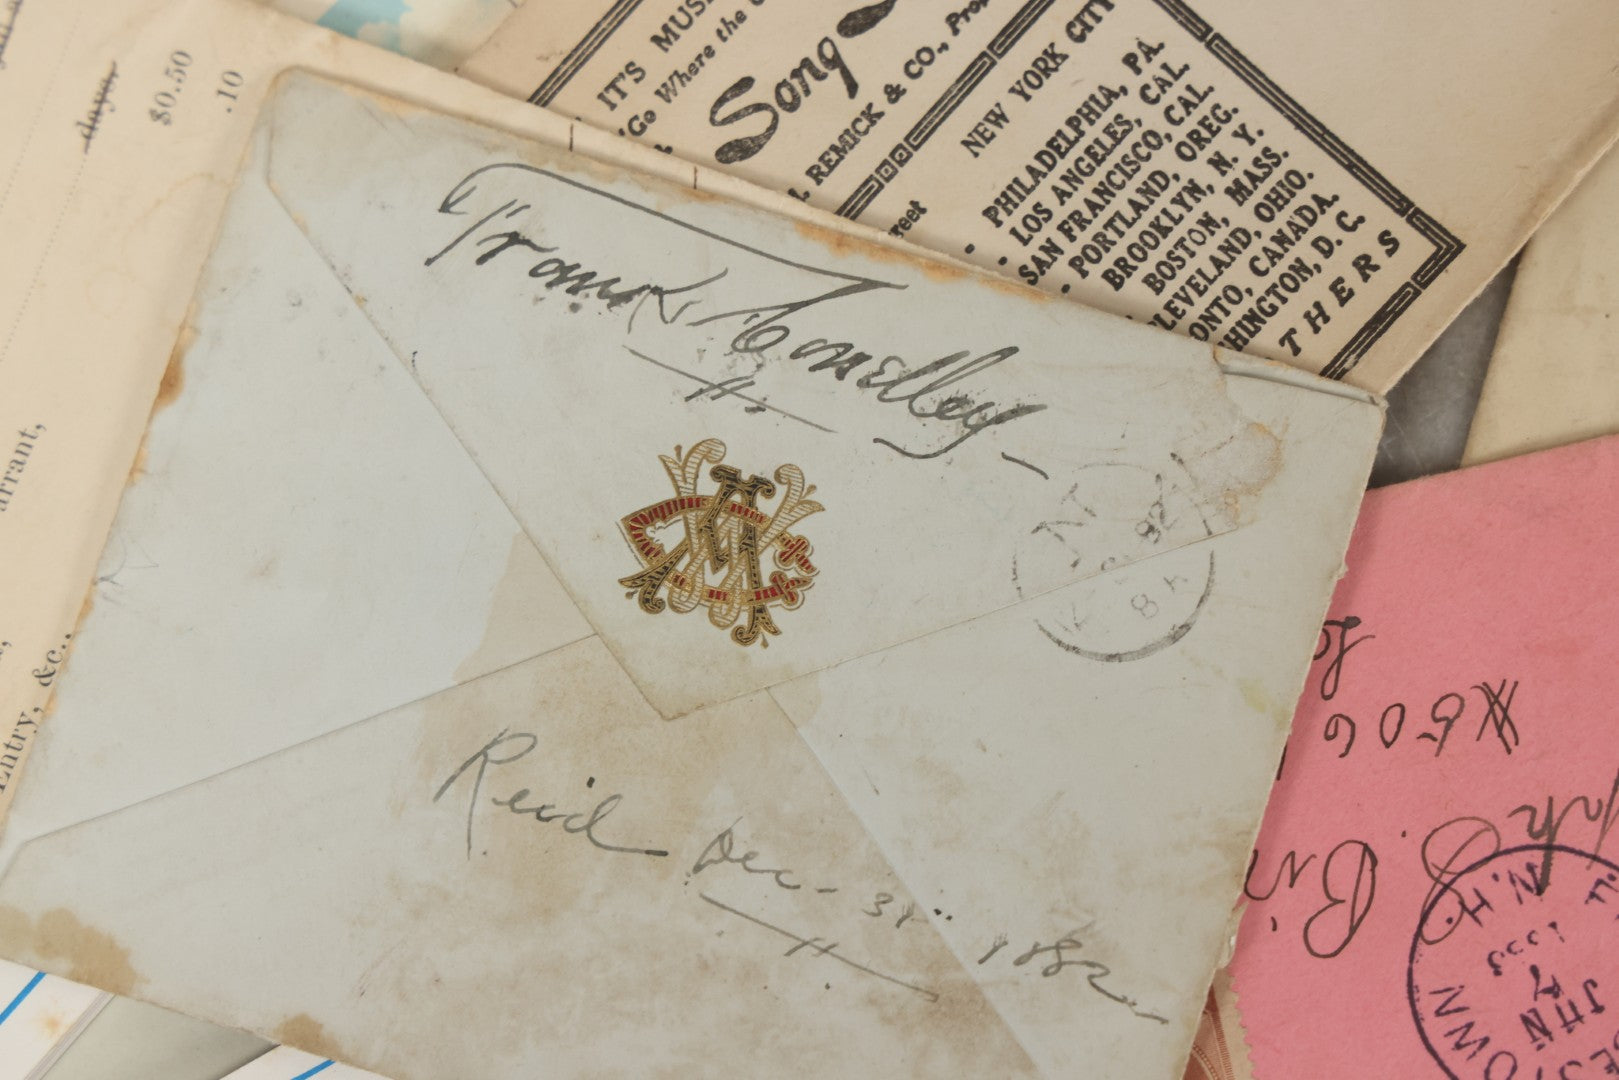 days,
$0.50
.10
arrant,
Entry, &c.,
IT'S MUS
Go Where the
Song
REMICK & CO., Prop
NEW YORK CITY
reet
PHILADELPHIA, PA.
LOS ANGELES, CAL.
SAN FRANCISCO, CAL.
PORTLAND, OREG.
BROOKLYN, N. Y.
BOSTON, MASS.
CLEVELAND, OHIO.
ONTO, CANADA.
HINGTON, D. C.
THERS
Frank Connelly
N
82
8 A
Recd Dec. 31" 1882
506
N.H.
JUN
7
OWN